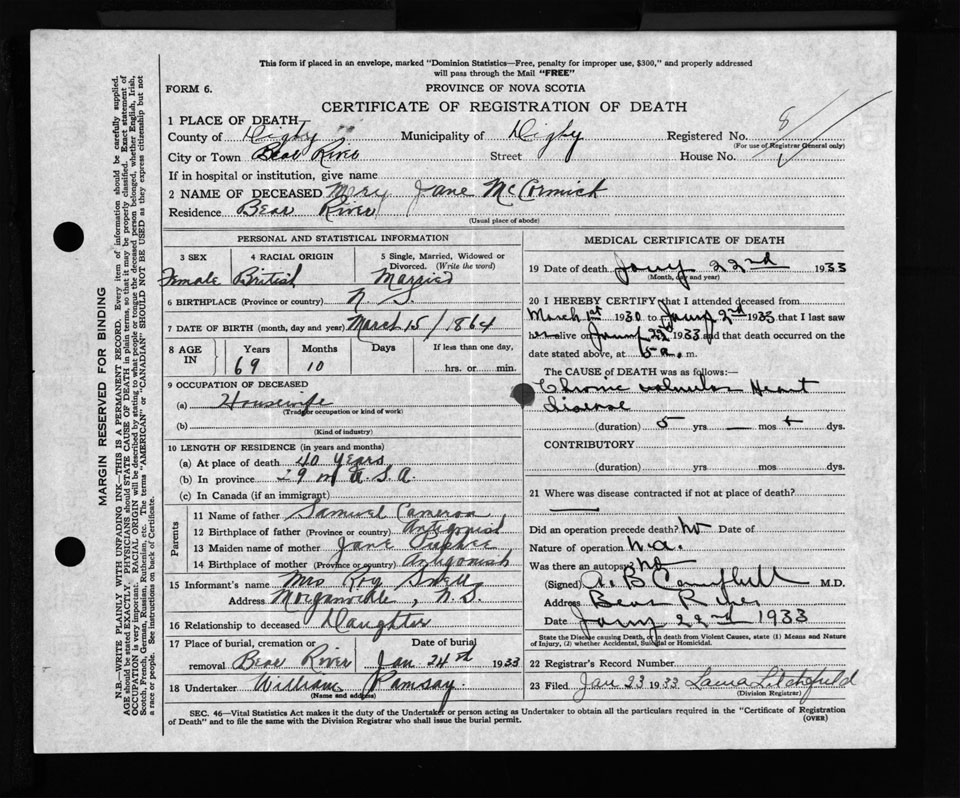 This form if placed in an envelope, marked "Dominion Statistics—Free, penalty for improper use, $300," and properly addressed
will pass through the Mail "FREE"
FORM 6.
PROVINCE OF NOVA SCOTIA
CERTIFICATE OF REGISTRATION OF DEATH
1 PLACE OF DEATH
County of Digby Municipality of Digby Registered No. 8
(For use of Registrar General only)
City or Town Bear River Street House No.
If in hospital or institution, give name
2 NAME OF DECEASED Mary Jane McCormick
Residence Bear River
(Usual place of abode)
PERSONAL AND STATISTICAL INFORMATION
3 SEX 4 RACIAL ORIGIN 5 Single, Married, Widowed or
Divorced. (Write the word)
Female British Married
6 BIRTHPLACE (Province or country) N. S.
7 DATE OF BIRTH (month, day and year) March 15/1864
8 AGE IN Years Months Days If less than one day,
69 10 hrs. or min.
9 OCCUPATION OF DECEASED
(a) Housewife
(Trade or occupation or kind of work)
(b)
(Kind of industry)
10 LENGTH OF RESIDENCE (in years and months)
(a) At place of death 40 years
(b) In province 29 in U.S.A
(c) In Canada (if an immigrant)
Parents
11 Name of father Samuel Cameron
12 Birthplace of father (Province or country) Antigonish
13 Maiden name of mother Jane
14 Birthplace of mother (Province or country) Antigonish
15 Informant's name Mrs Roy
Address Morganville, N.S.
16 Relationship to deceased Daughter
17 Place of burial, cremation or Date of burial
removal Bear River Jan 24th 1933
18 Undertaker William Ramsay.
(Name and address)
MEDICAL CERTIFICATE OF DEATH
19 Date of death Jany 22nd 1933
(Month, day and year)
20 I HEREBY CERTIFY that I attended deceased from
March 1st 1930 to Jany 22nd 1933 that I last saw
her alive on Jany 22 1933 and that death occurred on
date stated above, at 5 a. m.
The CAUSE of DEATH was as follows:—
Chronic valvular Heart
Disease
(duration) 5 yrs — mos + dys.
CONTRIBUTORY
(duration) yrs. mos. dys.
21 Where was disease contracted if not at place of death?
Did an operation precede death? No Date of
Nature of operation n.a.
Was there an autopsy? no
(Signed) A. B Campbell M.D.
Address Bear River
Date Jany 22nd 1933
State the Disease causing Death, or in death from Violent Causes, state (1) Means and Nature
of Injury, (2) whether Accidental, Suicidal or Homicidal.
22 Registrar's Record Number
23 Filed Jan 23 1933 Laura Litchfield
(Division Registrar)
SEC. 46—Vital Statistics Act makes it the duty of the Undertaker or person acting as Undertaker to obtain all the particulars required in the "Certificate of Registration
of Death" and to file the same with the Division Registrar who shall issue the burial permit.
(OVER)
MARGIN RESERVED FOR BINDING
N.B.—WRITE PLAINLY WITH UNFADING INK—THIS IS A PERMANENT RECORD. Every item of information should be carefully supplied.
AGE should be stated EXACTLY. PHYSICIANS should STATE CAUSE OF DEATH in plain terms, so that it may be properly classified. Exact statement of
OCCUPATION is very important. RACIAL ORIGIN will be described by stating to what people or tongue the deceased person belonged, whether English, Irish,
Scotch, French, German, Russian, Ruthenian, etc. The terms "AMERICAN" or "CANADIAN" SHOULD NOT BE USED as they express citizenship but not
a race or people. See instructions on back of Certificate.